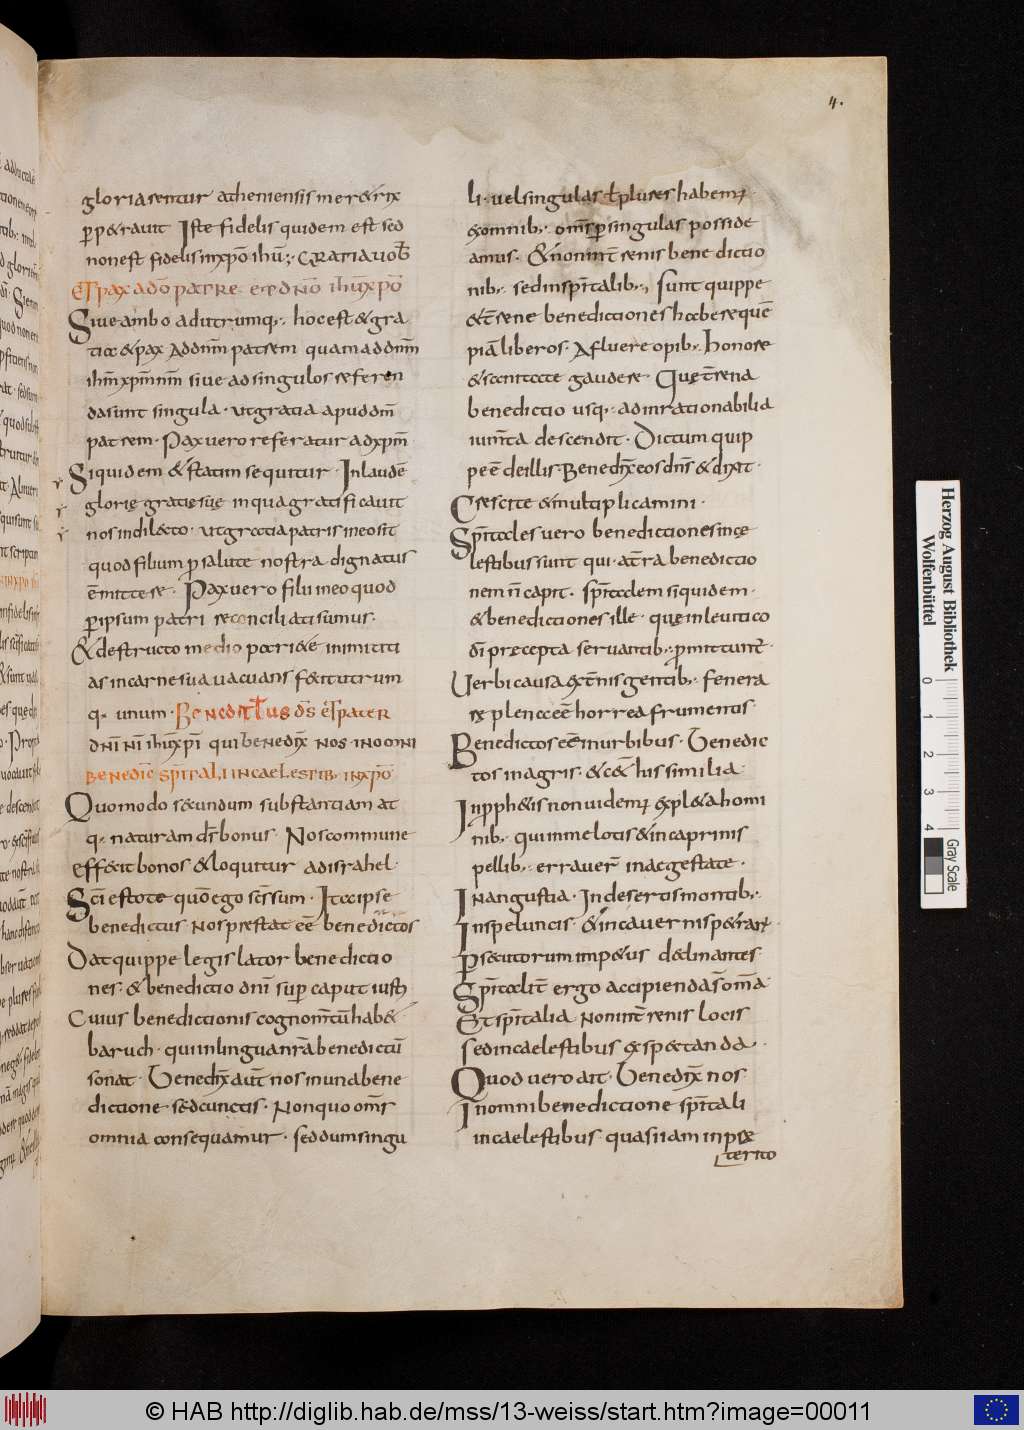 4.
gloriarentur atheniensis meretrix
ꝑpetrauit Iste fidelis quidem est sed
nonest fidelis inxp̄o ihū; GRATIA UOB̄
ET pax adō patre et dn̄o ihū xp̄o
Siue ambo ad utrumq; hoc est & gra
tia & pax Ad dn̄m patrem quam ad dn̄m
ihm̄ xpm̄ nr̄m siue ad singulos referen
da sunt singula · ut gratia apud dm̄
patrem · Pax uero referatur ad xpm̄
Siquidem & statim sequitur · In laudē
glorię gratię suę in qua gratificauit
nos in dilecto · ut gratia patris in eo sit
quod filium ꝑ salute nostra dignatus
ē mittere · Pax uero filii in eo quod
ꝑ ipsum patri reconciliati sumus ·
& destructo medio pariete inimiti
as in carne sua uacuans fecit utrum
q· unum · BeNedicTus ds̄ et pater
dn̄i nr̄i ihū xpi qui beNedix̄ Nos · iN omNi
beNedic̄ sp̄ital,i iN caelestib; iN xp̄o
Quomodo secundum substantiam at
q· naturam dr̄ bonus · Nos commune
effecit bonos & loquitur ad israhel ·
Sc̄i estote quō ego sc̄s sum · Ita & ipse
benedictus nos prestat eē benedictos
Dat quippe legislator benedictio
nes · & benedictio dn̄i suꝑ caput iusti
Cuius benedictionis cognom̄tū habet
baruch · qui in lingua nr̄a benedictū
sonat · Benedix̄ aūt nos in una bene
dictione sed cunctis · Non quo om̄s
omnia consequamur · sed dum singu
li · uel singulas ł plures habem;
ex omnib; om̄s ꝑ singulas posside
amus · & non in t̄renis benedictio
nib; sed in sp̄italib; sunt quippe
& t̄rene benedictiones habere quē
piā liberos · Afluere opib; honore
& sanitate gaudere Quę t̄rena
benedictio usq; ad inrationabilia
ium̄ta descendit · Dictum quip
pe ē de illis · Benedix̄ eos dn̄s & dixit ·
Crescite & multiplicamini ·
Sp̄itales uero benedictiones in cę
lestibus sunt qui at̄ra benedictio
nem n̄ capit · sp̄italem siquidem ·
& benedictiones ille · quę in leuitico
dī precepta seruantib; ꝑmittunt̄ ·
Uerbi causa ext̄nis gentib; fenera
re plena eē horrea frumentis ·
Benedictos eē in urbibus · Benedic
tos in agris · & cet̄ his similia ·
In ꝓph&is non uidem; expleta homi
nib; qui in melotis & in caprinis
pellib; erraueŕ in aegestate ·
In angustia · In desertis montib;
In speluncis · & in cauernis p&raŕ
Psecutorum imp&us declinantes ·
Sp̄italit̄ ergo accipiendas̄ om̄a
Et sp̄italia Non in t̄renis locis
sed in caelestibus expectanda ·
Quod uero ait · Benedix̄ nos ·
In omni benedictione sp̄itali
in caelestibus quasi iam in prę
terito
Herzog August Bibliothek
Wolfenbüttel
0 1 2 3 4
Gray Scale
© HAB http://diglib.hab.de/mss/13-weiss/start.htm?image=00011